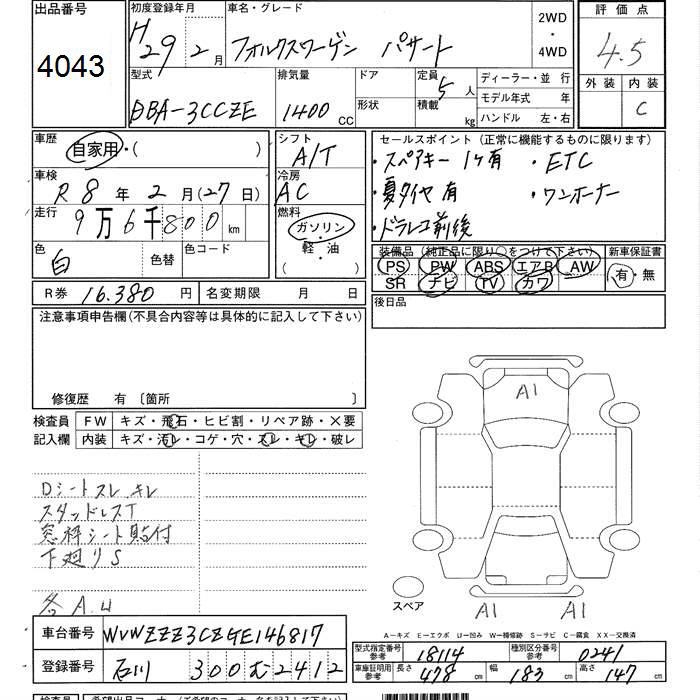 出品番号
4043
初度登録年月
H29年2月
車名・グレード
フォルクスワーゲン パサート
2WD
・
4WD
評価点
4.5
外装 内装
C
型式
DBA-3CCZE
排気量
1400 CC
ドア
形状
定員
5人
積載
kg
ディーラー・並行
モデル年式 年
ハンドル 左・右
車歴
自家用・( )
シフト
A/T
セールスポイント (正常に機能するものに限ります)
・スペアキー 1ケ有 ・ETC
・夏タイヤ有 ・ワンオーナー
・ドラレコ前後
車検
R8年2月(27日)
冷房
AC
走行
9万6千800km
燃料
ガソリン
・
軽・油
( )
色
白
色替
色コード
装備品 (純正品に限り○をつけて下さい)
PS PW ABS エアB AW
SR ナビ TV カワ
新車保証書
有・無
R券 16.380円
名変期限 月 日
後日品
注意事項申告欄(不具合内容等は具体的に記入して下さい)
修復歴 有 〔箇所 〕
検査員
記入欄
FW キズ・飛石・ヒビ割・リペア跡・×要
内装 キズ・汚レ・コゲ・穴・スレ・キレ・破レ
Dシートスレ.キレ
スタッドレスT
窓枠シート貼付
下廻りS
各A.U
A1
スペア
A1 A1
A−キズ E−エクボ U−凹み W−補修跡 S−サビ C−腐食 XX−交換済
車台番号 WVWZZZ3CZGE146817
登録番号 石川 300 む 2412
型式指定番号 18114
種別区分番号 0241
車庫証明用参考
長さ 478cm
幅 183cm
高さ 147cm